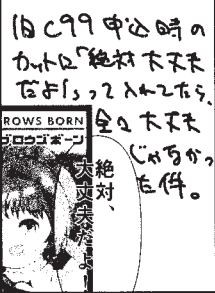 旧C99申込時の
カットに「絶対大丈夫
だよ!」って入れてたら、
全然大丈夫
じゃなかっ
た件。
ROWS BORN
ブロウズボーン
絶対、
大丈夫だよ!